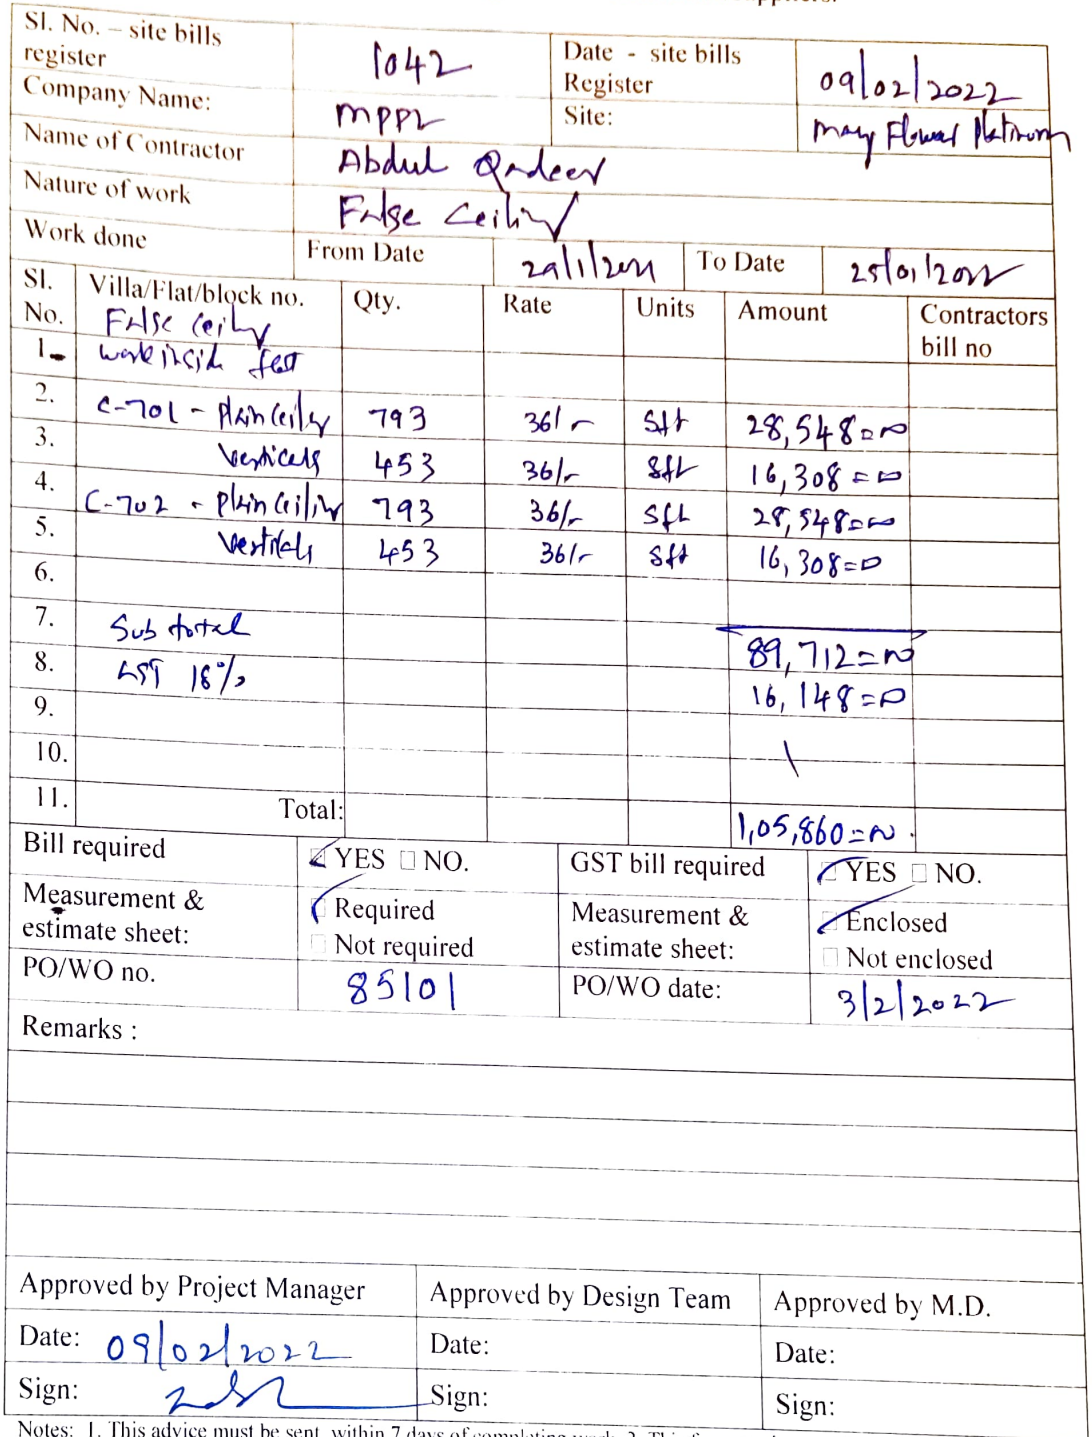 Sl. No. – site bills register 1042 Date - site bills Register 09/02/2022
Company Name: MPPL Site: May Flower Platinum
Name of Contractor Abdul Qadeer
Nature of work False Ceiling
Work done From Date 29/1/2021 To Date 25/01/2022
Sl. No. Villa/Flat/block no. Qty. Rate Units Amount Contractors bill no
False Ceiling
1. work inside flat
2. C-701 - Plain Ceiling 793 36/- Sft 28,548=00
3. Verticals 453 36/- Sft 16,308=00
4. C-702 - Plain Ceiling 793 36/- Sft 28,548=00
5. Verticals 453 36/- Sft 16,308=00
6.
7. Sub total 89,712=00
8. GST 18% 16,148=00
9.
10.
11. Total: 1,05,860=00
Bill required YES NO. GST bill required YES NO.
Measurement & estimate sheet: Required Not required Measurement & estimate sheet: Enclosed Not enclosed
PO/WO no. 85101 PO/WO date: 3/2/2022
Remarks :
Approved by Project Manager Approved by Design Team Approved by M.D.
Date: 09/02/2022 Date: Date:
Sign: Sign: Sign:
Notes: 1. This advice must be sent within 7 days of completing work. 2. This